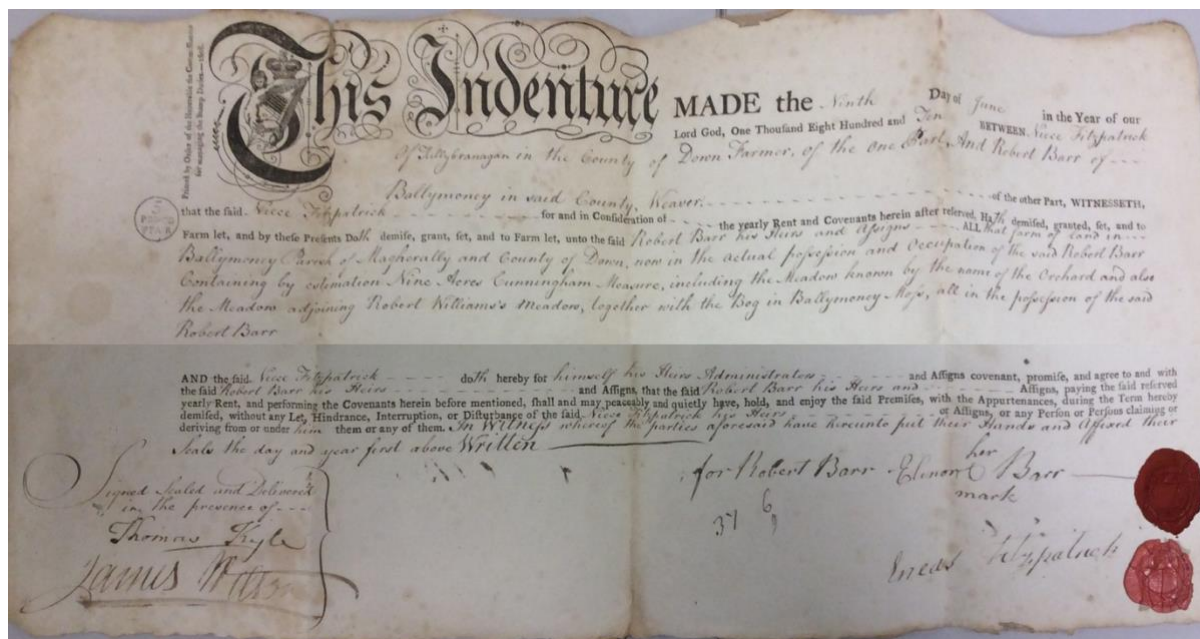 Printed by Order of the Honorable the Commissioners
for managing the Stamp Duties
This Indenture MADE the Ninth Day of June in the Year of our
Lord God, One Thousand Eight Hundred and Ten BETWEEN Neece Fitzpatrick
Of Tullybranagan in the County of Down Farmer, of the one Part, And Robert Barr of
Ballymoney in said County, Weaver. of the other Part, WITNESSETH,
that the said Neece Fitzpatrick for and in Consideration of the yearly Rent and Covenants herein after reserved, Hath demised, granted, set, and to
Farm let, and by these Presents Doth demise, grant, set, and to Farm let, unto the said Robert Barr his Heirs and Assigns ALL that farm of land in
Ballymoney Parish of Magherally and County of Down, now in the actual possession and Occupation of the said Robert Barr
Containing by estimation Nine Acres Cunningham Measure, including the Meadow known by the name of the Orchard and also
the Meadow adjoining Robert Williams's Meadow, together with the Bog in Ballymoney Moss, all in the possession of the said
Robert Barr
AND the said Neece Fitzpatrick doth hereby for himself his Heirs Administrators and Assigns covenant, promise, and agree to and with
the said Robert Barr his Heirs and Assigns, that the said Robert Barr his Heirs and Assigns, paying the said reserved
yearly Rent, and performing the Covenants herein before mentioned, shall and may peaceably and quietly have, hold, and enjoy the said Premises, with the Appurtenances, during the Term hereby
demised, without any Let, Hindrance, Interruption, or Disturbance of the said Neece Fitzpatrick his Heirs or Assigns, or any Person or Persons claiming or
deriving from or under him them or any of them. In Witness whereof the parties aforesaid have hereunto put their Hands and Affixed their
Seals the day and year first above Written
Signed Sealed and Delivered
in the presence of
Thomas Kyle
James
for Robert Barr Elinor her Barr
mark
37 6
Eneas Fitzpatrick